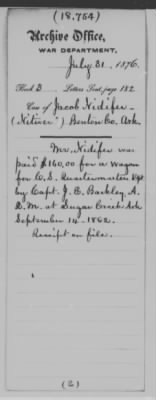 (18,754)
Archive Office,
WAR DEPARTMENT,
July 31, 1876.
Book 3 Letters Sent, page 182
Case of Jacob Nidifer
(Nitiver") Benton Co. Ark
Mr. Nidifer was
paid $160.00 for a wagon
for C.S. Quartermaster Dept
by Capt. J. E. Barkley, A.
Q.M. at Sugar Creek Ark
September 14, 1862.
Receipt on file.
(2)